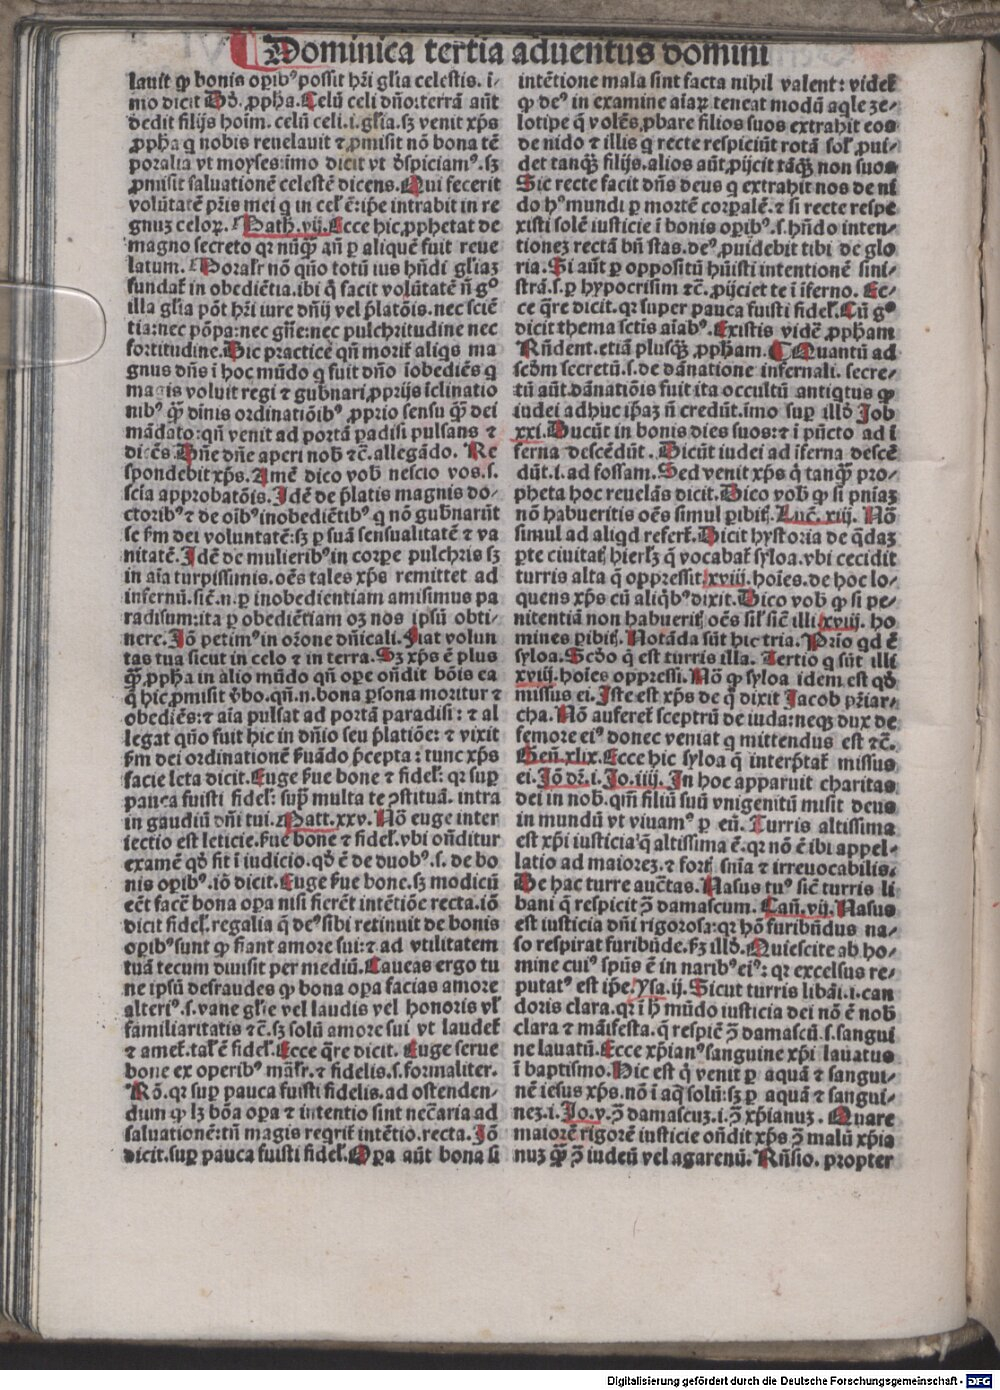 Dominica tertia aduentus domini
lauit ꝙ bonis oꝑibꝰ possit hr̄i gl̄ia celestis. i-
mo dicit Dd̄. ꝓpha. Celū celi dn̄o: terrā aūt
dedit filijs hoim̄. celū celi .i. gl̄ia. sꝫ venit xp̄s
ꝓpha q nobis reuelauit ⁊ ꝓmisit nō bona tē
poralia vt moyses: imo dicit vt ḋspiciamꝰ. sꝫ
ꝓmisit saluationē celestē dicens. Qui fecerit
volūtatē pr̄is mei q in cel̄ ē: ip̄e intrabit in re
gnuꝫ celoꝝ. Math. vij. Ecce hic ꝓphetat de
magno secreto qꝛ nūqꝫ añ ꝑ aliquē fuit reue
latum. Moral'r nō qn̄o totū ius hn̄di gl̄iaꝫ
fundat̄ in obediētia. ibi q̄ facit volūtatē n̄ gͦ
illa gl̄ia pōt hr̄i iure dn̄ij vel p̄latōis. nec sciē
tia: nec pōpa: nec gn̄e: nec pulchritudine nec
fortitudine. Hic practicē qn̄ morit̄ aliqs ma
gnus dn̄s i hoc mūdo q fuit dn̄o iobediēs q
magis voluit regi ⁊ gubnari ꝓprijs iclinatio
nibꝰ qꝫ diuis ordinatiōibꝰ ꝓprio sensu qꝫ dei
mādato: qn̄ venit ad portā padisi pulsans ⁊
dicēs. Dn̄e dn̄e aperi nob ⁊c̄. allegādo. Re
spondebit xp̄s. Amē dico vob nescio vos. s.
scīa approbatōis. Idē de p̄latis magnis do-
ctoribꝰ ⁊ de oībꝰ inobediētibꝰ q nō gubnarūt
se ẜm dei voluntatē: sꝫ ꝑ suā sensualitatē ⁊ va
nitatē. Idē de mulieribꝰ in corpe pulchris sꝫ
in aīa turpissimis. oēs tales xp̄s remittet ad
infernū. sic̄. n. ꝑ inobedientiam amisimus pa
radisum: ita ꝑ obediētiam oꝫ nos ipsū obti-
nere. Iō petimꝰ in or̄one dn̄icali. Fiat volun
tas tua sicut in celo ⁊ in terra. Sꝫ xp̄s ē plus
qꝫ ꝓpha in alio mūdo qn̄ oꝑe on̄dit bōis ea
q̄ hic ꝓmisit v̄bo. qn̄. n. bona ꝑsona moritur ⁊
obediēs: ⁊ aīa pulsat ad portā paradisi: ⁊ al
legat qn̄o fuit hic in dn̄io seu p̄latiōe: ⁊ vixit
ẜm dei ordinationē ẜuādo p̄cepta: tunc xp̄s
facie leta dicit. Euge ẜue bone ⁊ fidel̄: qꝛ suꝑ
pauca fuisti fidel̄: supꝫ multa te ꝯstituā. intra
in gaudiū dn̄i tui. Matt. xxv. Nō euge inter
iectio est leticie. ẜue bone ⁊ fidel̄. vbi on̄ditur
examē qd̄ fit i iudicio. qd̄ ē de duobꝰ. s. de bo
nis oꝑibꝰ. iō dicit. Euge ẜue bone. sꝫ modicū
eēt facē bona oꝑa nisi fierēt intētiōe recta. iō
dicit fidel̄. regalia q̄ deꝰ sibi retinuit de bonis
oꝑibꝰ sunt ꝙ fiant amore sui: ⁊ ad vtilitatem
tuā tecum diuisit per mediū. Caueas ergo tu
ne ipsū defraudes ꝙ bona oꝑa facias amore
alteriꝰ. s. vane gl̄ie vel laudis vel honoris vl̄
familiaritatis ⁊c̄. sꝫ solū amore sui vt laudet̄
⁊ amet̄. tal̄ ē fidel̄. Ecce q̄re dicit. Euge serue
bone ex operibꝰ māl'r. ⁊ fidelis. s. formaliter.
Rō. qꝛ suꝑ pauca fuisti fidelis. ad ostenden-
dum ꝙ lꝫ bōa oꝑa ⁊ intentio sint nec̄aria ad
saluationē: tn̄ magis reqrit̄ intētio. recta. Iō
dicit. suꝑ pauca fuisti fidel̄. Oꝑa aūt bona si
intētione mala sint facta nihil valent: videt̄
ꝙ deꝰ in examine aīaꝝ teneat modū aqle ze-
lotipe q̄ volēs ꝓbare filios suos extrahit eos
de nido ⁊ illis q recte respiciūt rotā sol̄ ꝓui-
det tanqꝫ filijs. alios aūt ꝓijcit tāqꝫ non suos
Sic recte facit dn̄s deus q extrahit nos de ni
do hꝰ mundi ꝑ mortē corꝑalē. ⁊ si recte respe
xisti solē iusticie i bonis oꝑibꝰ. s. hn̄do inten-
tioneꝫ rectā bn̄ stas. deꝰ ꝓuidebit tibi de glo
ria. Si aūt ꝑ oppositū hūisti intentionē sini-
strā. s. ꝑ hypocrisim ⁊c̄. ꝓijciet te i iferno. Ec-
ce q̄re dicit. qꝛ super pauca fuisti fidel̄. Cū gͦ
dicit thema sctis aīabꝰ. Existis vidē ꝓpham
Rn̄dent. etiā plusqꝫ ꝓpham. ¶ Quantū ad
scdm secretū. s. de dānatione infernali. secre-
tū aūt. dānatiōis fuit ita occultū antiqtus ꝙ
iudei adhuc ip̄aꝫ n̄ credūt. imo suꝑ illd̄ Iob
xxi. Ducūt in bonis dies suos: ⁊ i pūcto ad i
ferna descēdūt. Dicūt iudei ad iferna descē
dūt. i. ad fossam. Sed venit xp̄s q̄ tanqꝫ pro-
pheta hoc reuelās dicit. Dico vob ꝙ si pn̄iaꝫ
nō habueritis oēs simul ꝑibit̄. Luc̄. xiij. Nō
simul ad aliqd refert̄. Dicit hystoria de q̄daꝫ
ꝑte ciuitat̄ hierl̄ꝫ q̄ vocabat̄ syloa. vbi cecidit
turris alta q̄ oppressit xviij. hoīes. de hoc lo-
quens xp̄s cū aliqbꝰ dixit. Dico vob ꝙ si pe-
nitentiā non habuerit̄ oēs sil̄ sic̄ illi xviij. ho
mines ꝑibit̄. Notāda sūt hic tria. Prīo qd ē
syloa. Scd̄o q̄ est turris illa. Tertio q sūt illi
xviij. hoīes oppressi. Nō ꝙ syloa idem est qd̄
missus ei. Iste est xp̄s de q̄ dixit Jacob pr̄iar-
cha. Nō auferet̄ sceptrū de iuda: neqꝫ dux de
femore eiꝰ donec veniat q mittendus est ⁊c̄.
Gen̄. xlix. Ecce hic syloa q̄ interp̄tat̄ missus
ei. Iō dr̄. i. Jo. iiij. In hoc apparuit charitas
dei in nob. qm̄ filiū suū vnigenitū misit deus
in mundū vt viuamꝰ ꝑ eū. Turris altissima
est xp̄i iusticia q̄ altissima ē. qꝛ nō ē ibi appel-
latio ad maioreꝫ. ⁊ fort̄ sn̄ia ⁊ irreuocabilis.
De hac turre auc̄tas. Nasus tuꝰ sic̄ turris li
bani q̄ respicit ꝯ̄ damascum. Can̄. vij. Nasus
est iusticia dn̄i rigorosa: qꝛ hō furibūdus na-
so respirat furibūde. ẜꝫ illd̄. Quiescite ab ho-
mine cuiꝰ spūs ē in naribꝰ eiꝰ: qꝛ excelsus re-
putatꝰ est ip̄e. Ysa. ij. Sicut turris libāi. i. can
doris clara. qꝛ i h̄ mūdo iusticia dei nō ē nob
clara ⁊ māifesta. q̄ respic̄ ꝯ̄ damascū. s. sangui
ne lauatū. Ecce xp̄ianꝰ sanguine xp̄i lauatus
i baptismo. Hic est q̄ venit ꝑ aquā ⁊ sangui-
nē iesus xp̄s. nō i aq̄ solū: sꝫ ꝑ aquā ⁊ sangui-
neꝫ. i. Jo. v. ꝯ̄ damascuꝫ. i. ꝯ̄ xp̄ianuꝫ. Quare
maiorē rigorē iusticie on̄dit xp̄s ꝯ̄ malū xp̄ia
nuꝫ qꝫ ꝯ̄ iudeū vel agarenū. Rn̄sio. propter
Digitalisierung gefördert durch die Deutsche Forschungsgemeinschaft - DFG